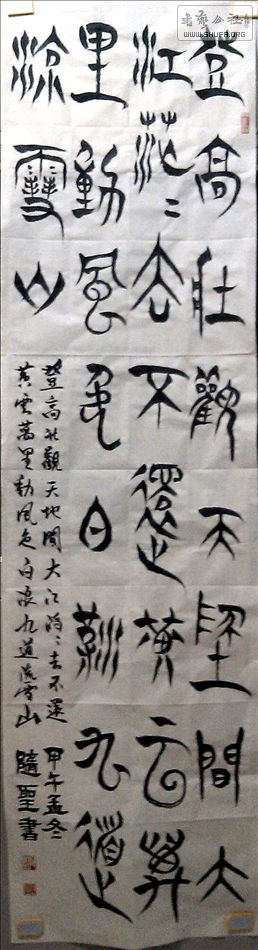 登高壯觀天地間大
江茫々去不還黃云萬
里動風色白九道
流雪山
登高壯觀天地間大江茫々去不還
黃雲萬里動風色白浪九道流雪山
甲午孟冬
隨聖書
书艺公社
WWW.SHUFA.ORG